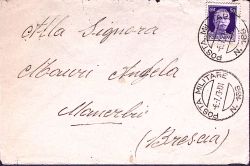 Alla Signora
Mauri Angela
Manerbio
(Brescia)
POSTA MILITARE
POSTA MILITARE